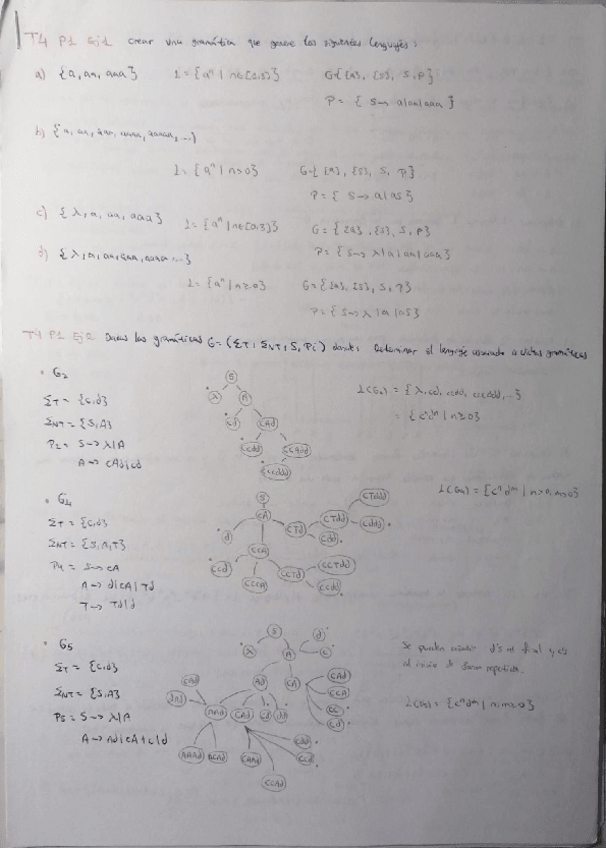 T4 P1 Ej1 Crear una gramática que genere los siguientes lenguajes:
a) {a, aa, aaa} L = {aⁿ | n∈[1,3]} G={{a}, {S}, S, P}
P = { S→ a|aa|aaa }
b) {a, aa, aaa, aaaa, aaaaa, ...}
L = {aⁿ | n>0} G={{a}, {S}, S, P}
P = { S→ a|aS }
c) {λ, a, aa, aaa} L = {aⁿ | n∈[0,3]} G = {{a}, {S}, S, P}
P = { S→ λ|a|aa|aaa }
d) {λ, a, aa, aaa, aaaa ...}
L = {aⁿ | n≥0} G={{a}, {S}, S, P}
P = { S→ λ|a|aS }
T4 P1 Ej2 Dadas las gramáticas G = (ΣT, ΣNT, S, Pi) donde: Determinar el lenguaje asociado a dichas gramáticas
• G2
ΣT = {c,d}
ΣNT = {S,A}
P2 = S→ λ|A
A→ cAd|cd
S
λ A
cd cAd
ccdd ccAdd
cccddd
L(G2) = {λ, cd, ccdd, cccddd, ...}
= {cⁿdⁿ | n≥0}
• G4
ΣT = {c,d}
ΣNT = {S,A,T}
P4 = S→ cA
A→ d|cA|Td
T→ Td|d
S
cA
cd cTd cTdd cTddd
cdd cddd
ccA
ccd cccA ccTd ccTdd
ccdd
L(G4) = {cⁿdᵐ | n>0, m>0}
• G5
ΣT = {c,d}
ΣNT = {S,A}
P5 = S→ λ|A
A→ Ad|cA|c|d
S
λ A d
c
Ad cA
cAd
ccA
cc
cd
AAd cAd cd dd
cdd
ccd
ccAd
Se pueden añadir d's al final y c's
al inicio de forma repetida.
L(G5) = {cⁿdᵐ | n,m≥0}